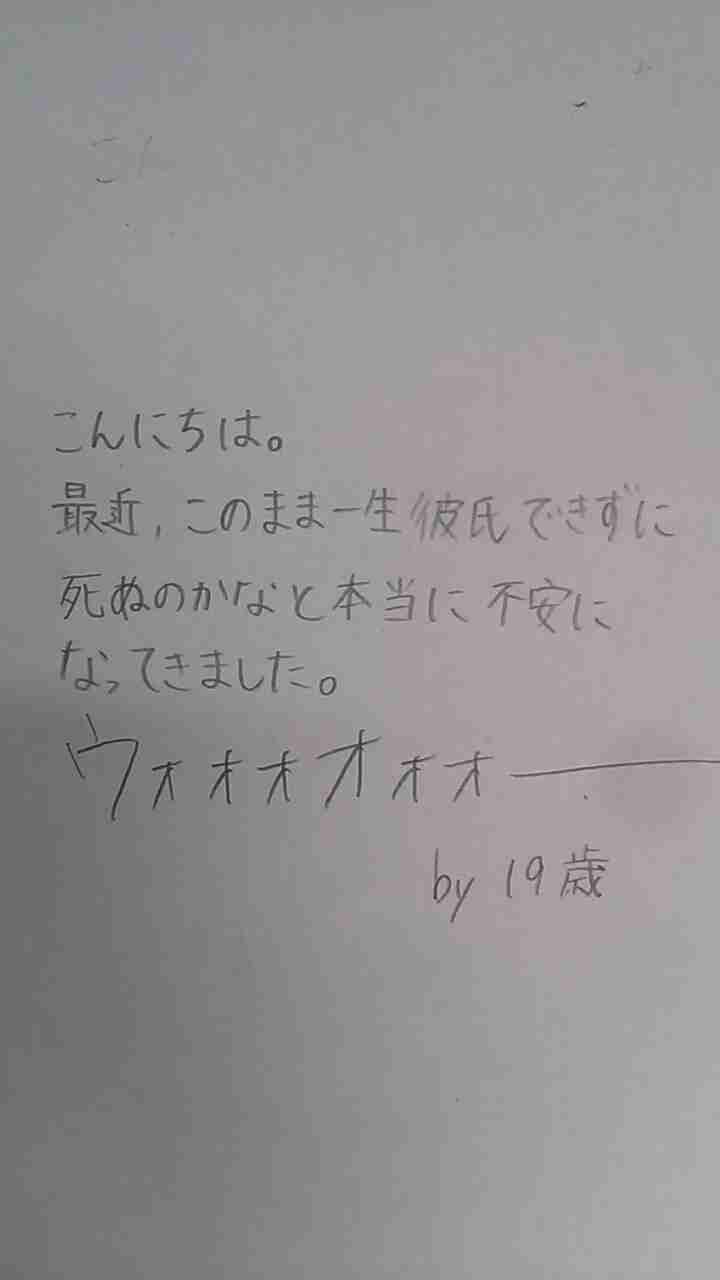 こんにちは。
最近,このまま一生彼氏できずに
死ぬのかなと本当に不安に
なってきました。
ウォォォオォォー
by 19歳